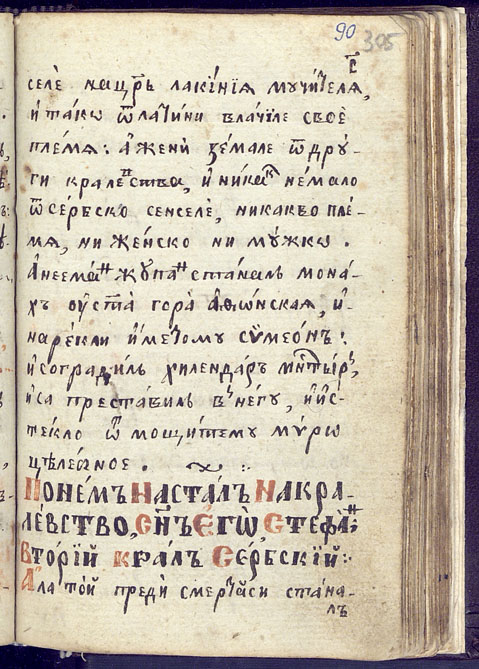 90 305
селѐ на цр҃ь лакі́нїа мучи́теля,
и҆ та́кѡ ѿ лати́ни влачи́ле своѐ
пле́мя: а҆ жени̏ ѕе́мале ѿ дрꙋ́-
ги кралеⷡ҇ства, и҆ ника́кⷡ не́мало
ѿ се́рбско сенселѐ, никакво пле́-
мя, ни же́нско ни мꙋ́жко.
А҆ неема́ⷩ жꙋпаⷩ ста́налъ мона́-
хъ ꙋ҆ ст҃а гора̀ а҆ѳѡ́нская, и҆
наре́кли и҆́ме томꙋ сѷмео́нъ:
и҆ согради́лъ хиленда́ръ мнⷭ҇ти́ръ,
и҆ са преста́вилъ в не́гꙋ, и҆ и҆с-
те́кло ѿ мощи́те мꙋ мѵ́ро
цѣле́бное.
По не́мъ наста́лъ на кра-
ле́вство, сн҃ъ є҆гѡ̀, Стефа́ⷩ
вто́рїй кра́лъ Се́рбскїй:
А҆ла то́й преди̏ сме́рть си ста́на-
лъ